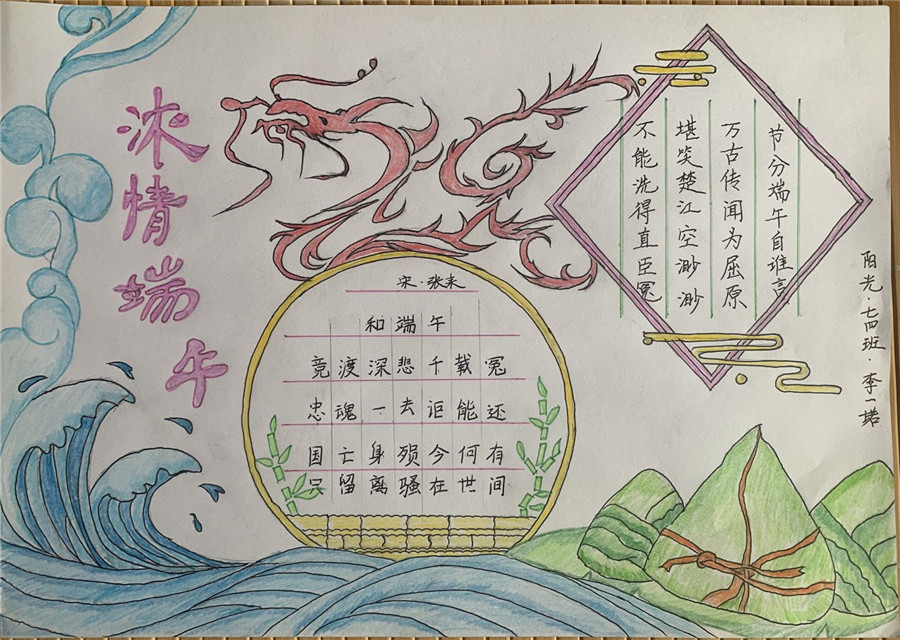 浓情端午
宋·张耒
和端午
竞渡深悲千载冤
忠魂一去讵能还
国亡身殒今何有
只留离骚在世间
节分端午自谁言
万古传闻为屈原
堪笑楚江空渺渺
不能洗得直臣冤
阳光·七四班·李一诺